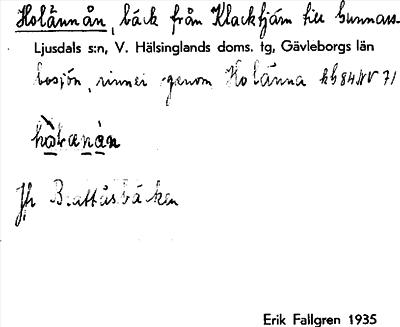 Holännån, bäck från Klacktjärn till Gunnars-
Ljusdals s:n, V. Hälsinglands doms. tg, Gävleborgs län
bosjön, rinner genom Holänna kb 84 NV 71

Jfr Brattåsbäcken
Erik Fallgren 1935